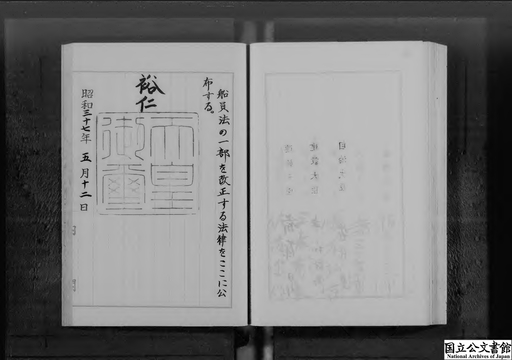 船員法の一部を改正する法律をここに公
布する。
裕仁
天皇
御璽
昭和三十七年 五月十二日
国立公文書館
National Archives of Japan